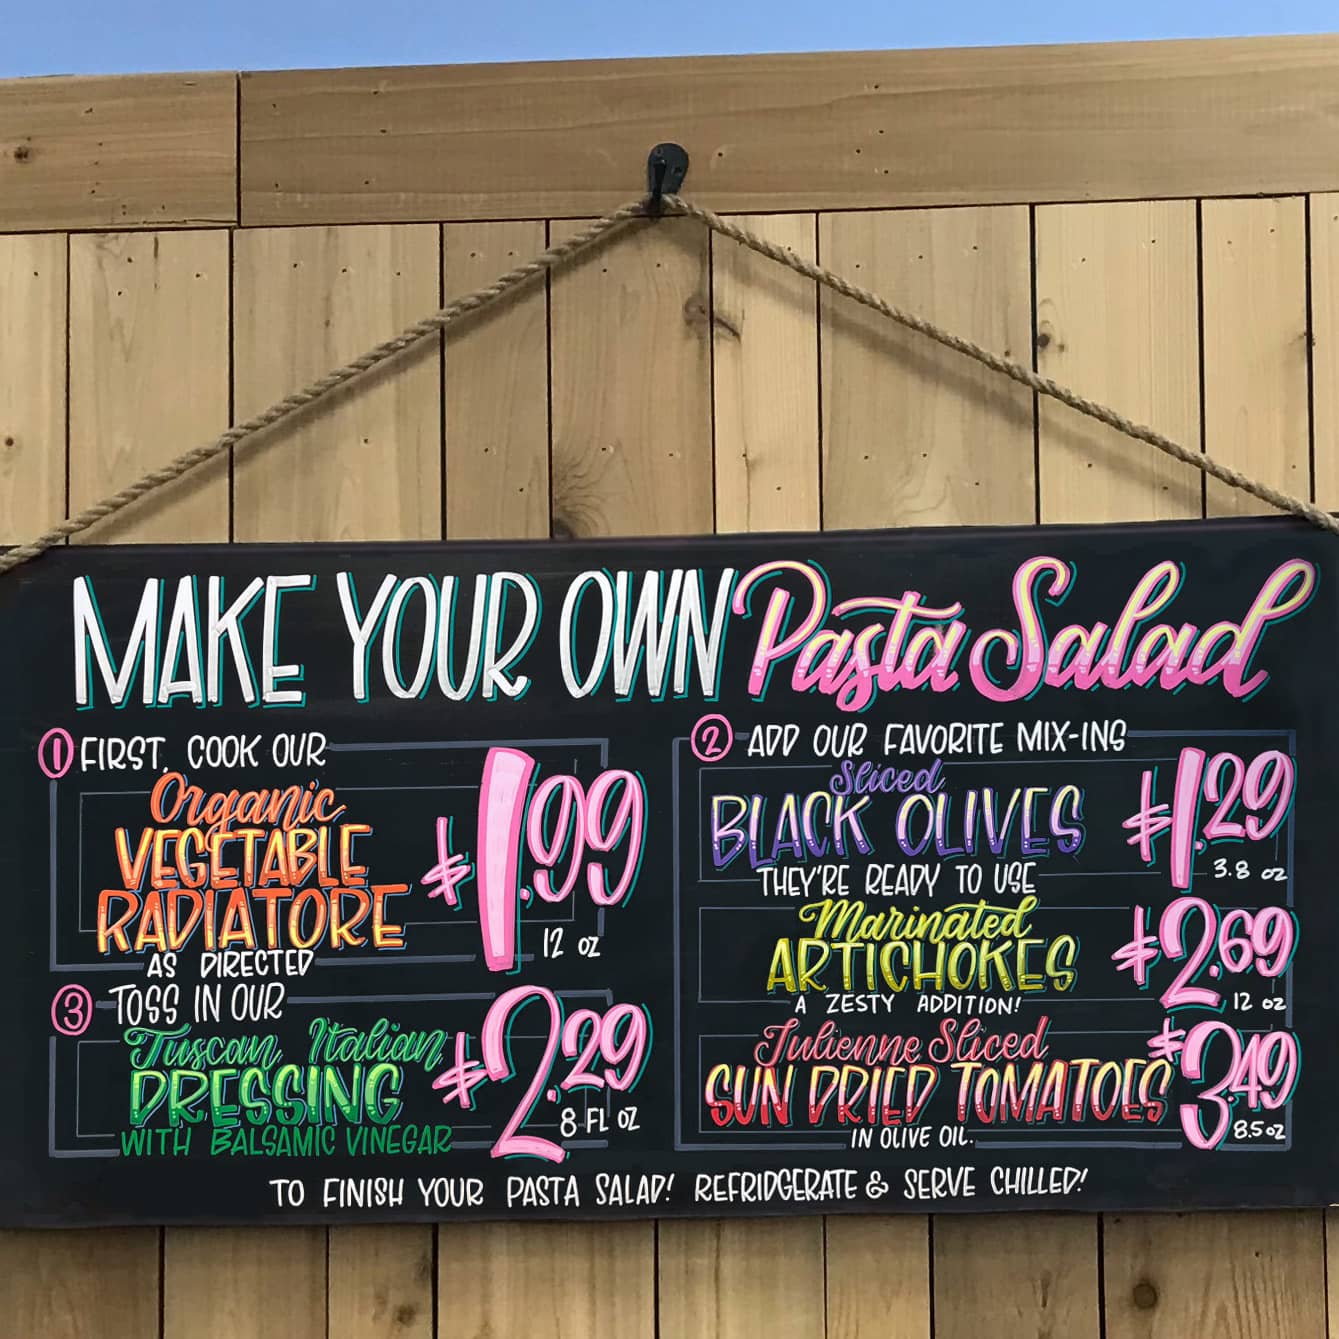 MAKE YOUR OWN Pasta Salad
1 FIRST, COOK OUR
Organic
VEGETABLE
RADIATORE
AS DIRECTED
$1.99
12 oz
2 ADD OUR FAVORITE MIX-INS
Sliced
BLACK OLIVES
THEY'RE READY TO USE
$1.29
3.8 oz
Marinated
ARTICHOKES
A ZESTY ADDITION!
$2.69
12 oz
Julienne Sliced
SUN DRIED TOMATOES
IN OLIVE OIL.
$3.49
8.5 oz
3 TOSS IN OUR
Tuscan Italian
DRESSING
WITH BALSAMIC VINEGAR
$2.29
8 FL OZ
TO FINISH YOUR PASTA SALAD! REFRIDGERATE & SERVE CHILLED!